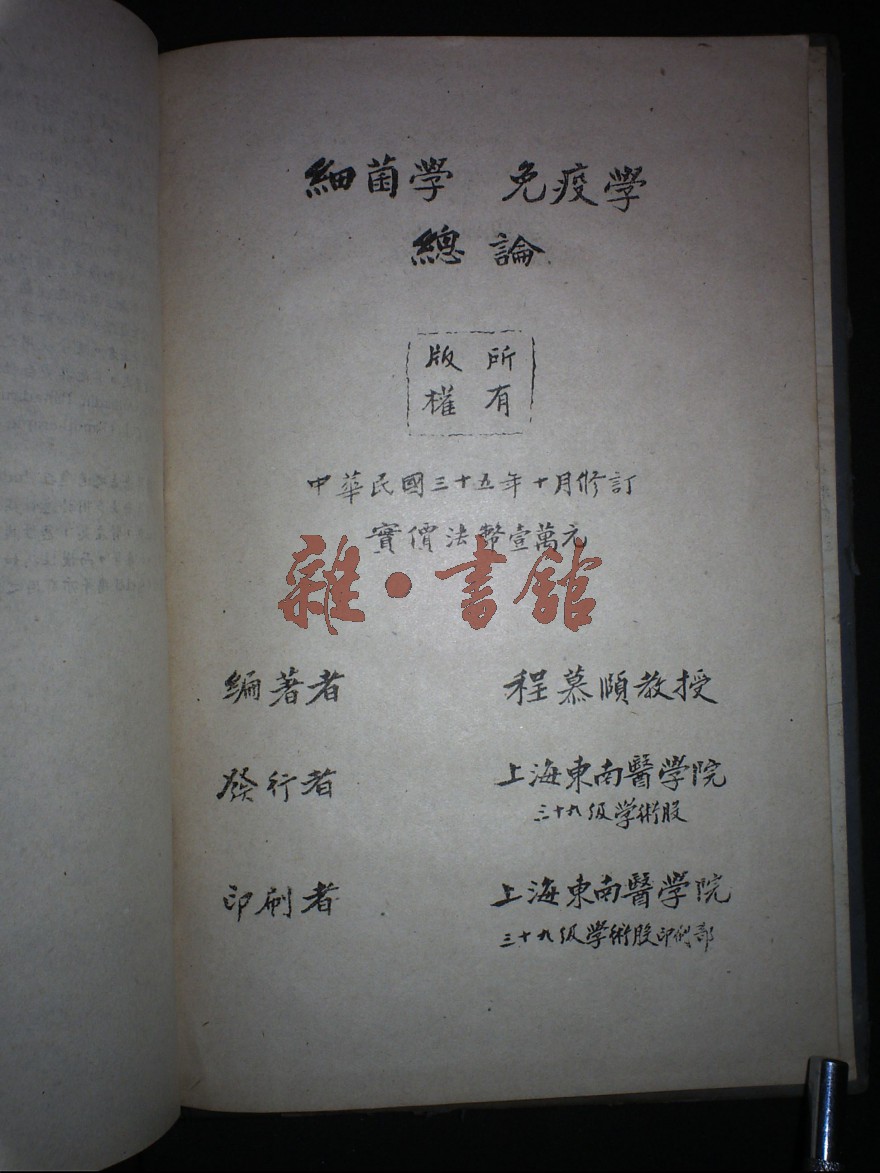 細菌學 免疫學
總論
版 所
權 有
中華民國三十五年十月修訂
實價法幣壹萬元
雜·書館
編著者 程慕頤教授
發行者 上海東南醫學院
三十九级学術股
印刷者 上海東南醫學院
三十九级學術股印刷部